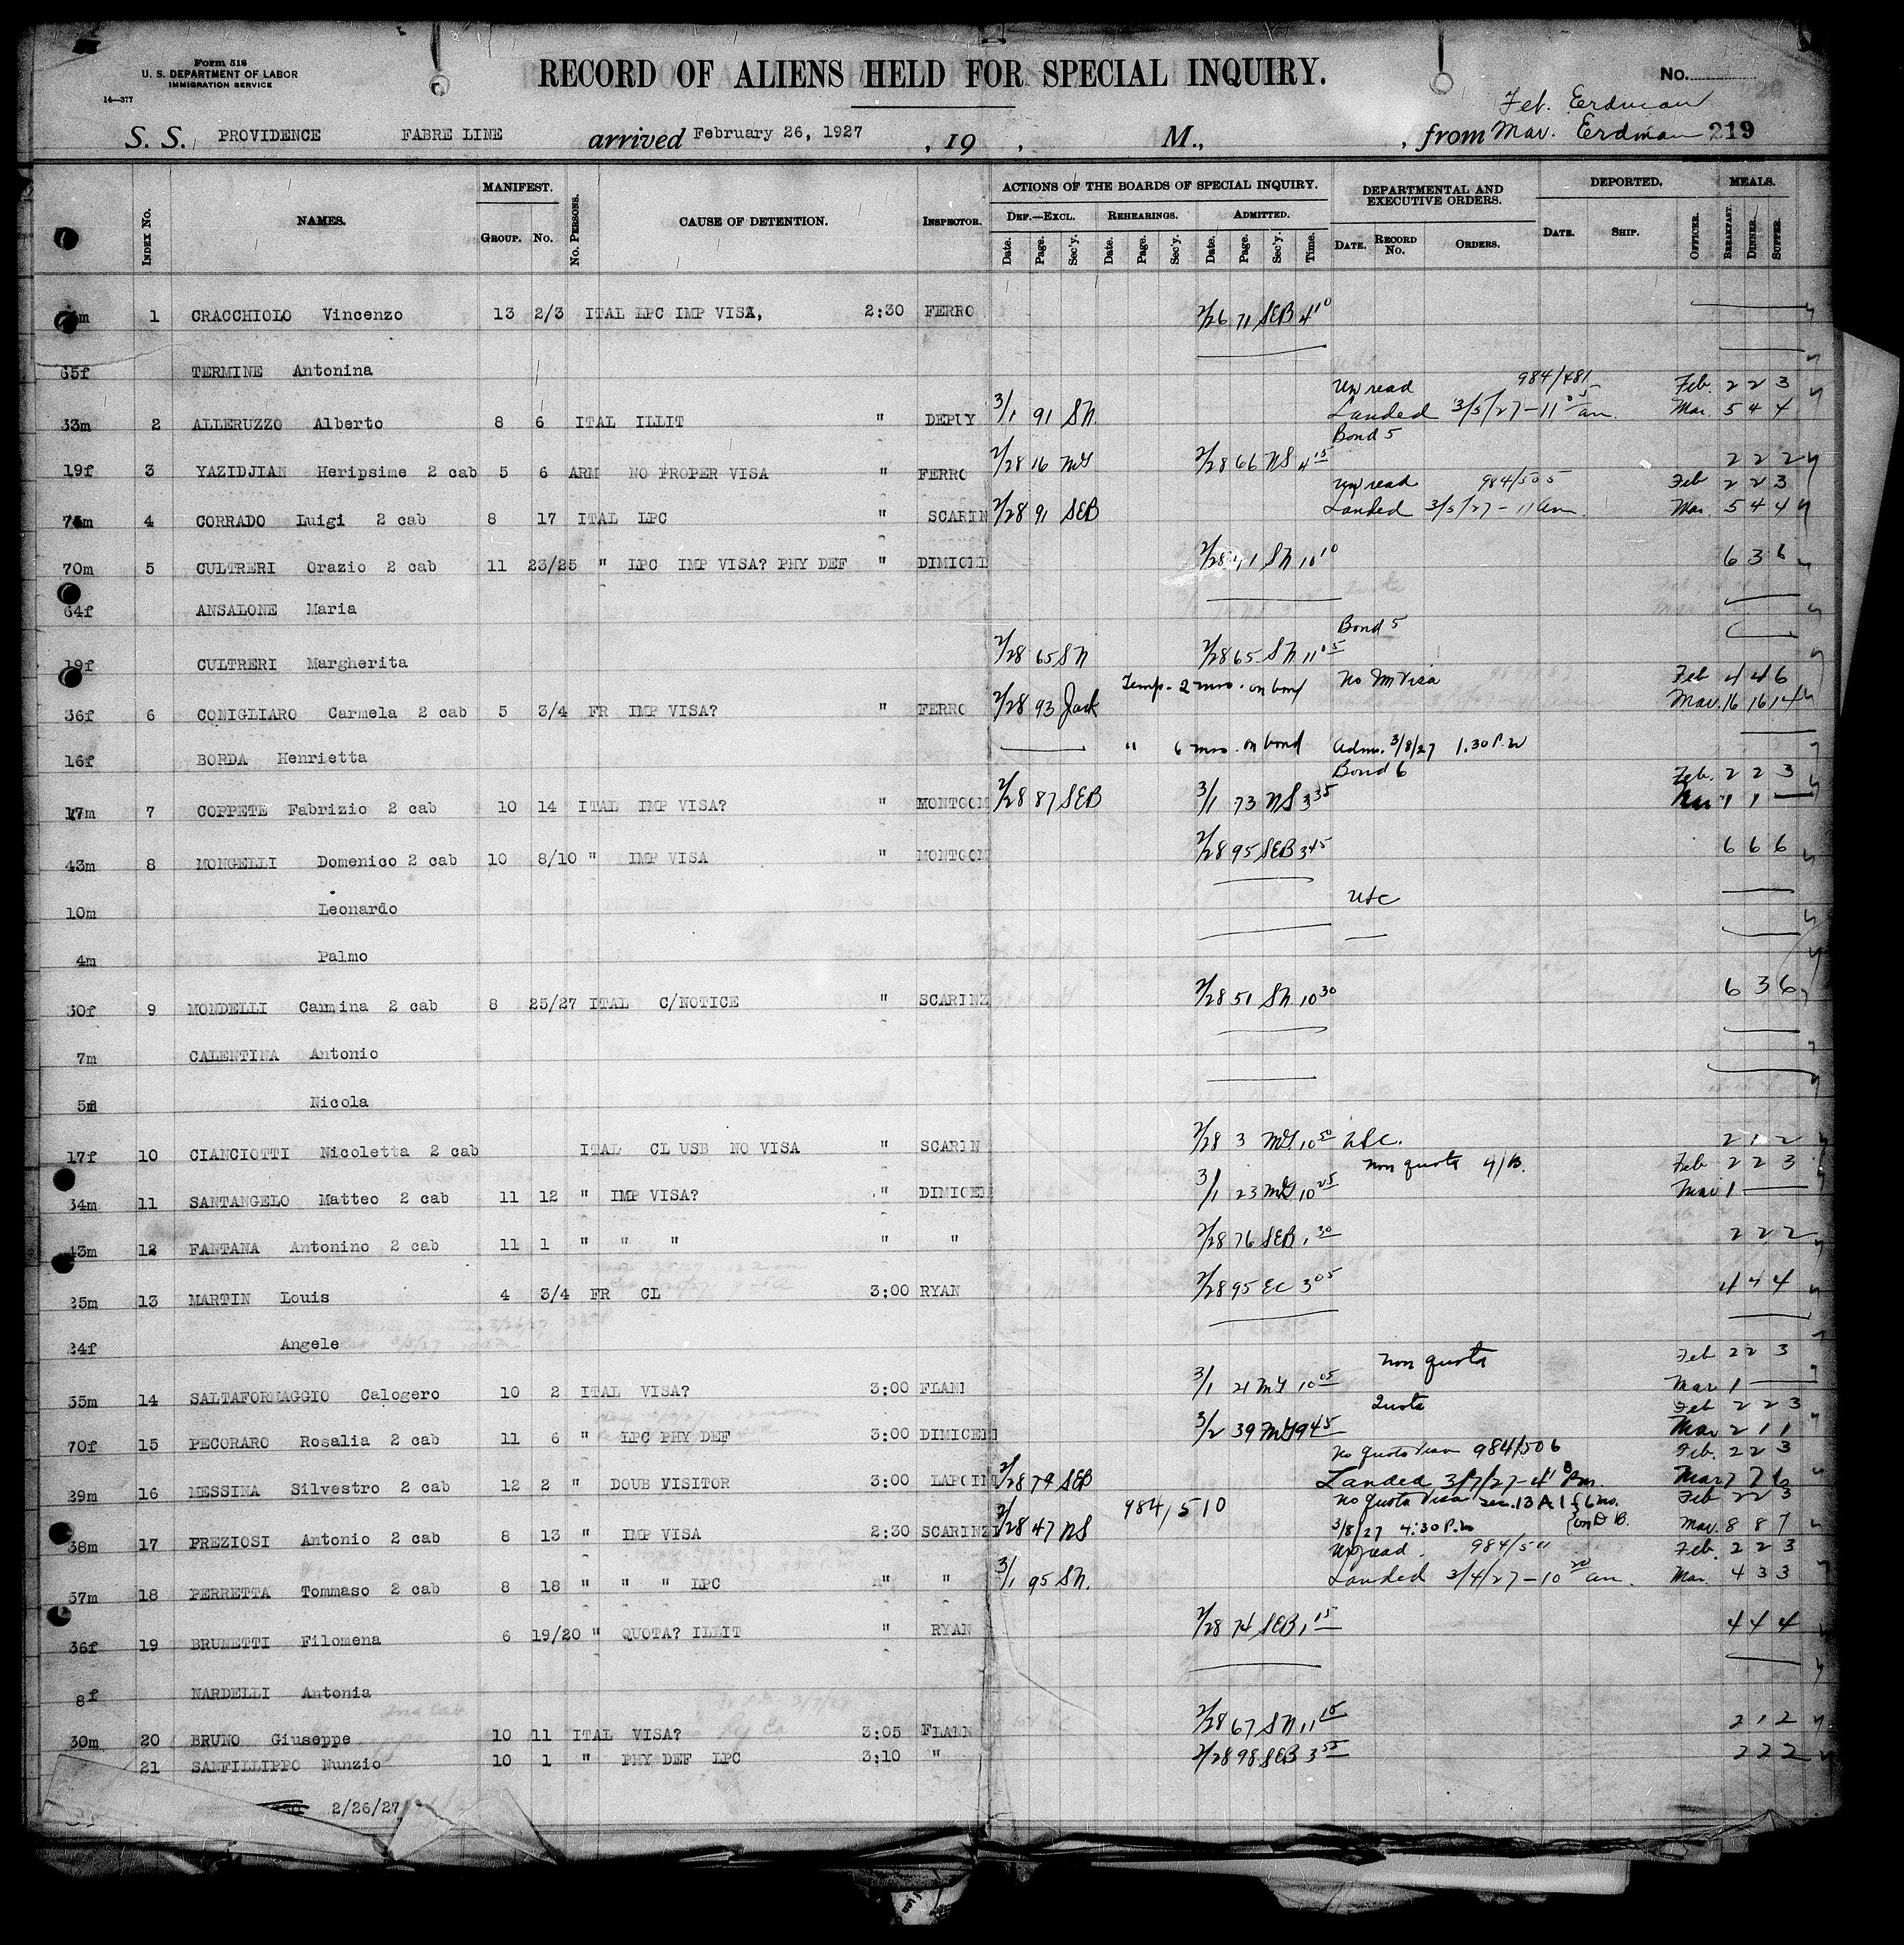 Form 518
U. S. DEPARTMENT OF LABOR
IMMIGRATION SERVICE
14—377
RECORD OF ALIENS HELD FOR SPECIAL INQUIRY.
No.
Feb. Erdman
S. S. PROVIDENCE FABRE LINE arrived February 26, 1927 , 19 , M., , from Mar. Erdman 219
INDEX NO. NAMES. MANIFEST. GROUP. NO. NO. PERSONS. CAUSE OF DETENTION. INSPECTOR. ACTIONS OF THE BOARDS OF SPECIAL INQUIRY. DEF.—EXCL. Date. Page. Sec'y. REHEARINGS. Date. Page. Sec'y. ADMITTED. Date. Page. Sec'y. Time. DEPARTMENTAL AND EXECUTIVE ORDERS. DATE. RECORD NO. ORDERS. DEPORTED. DATE. SHIP. OFFICER. MEALS. BREAKFAST. DINNER. SUPPER.
m 1 CRACCHIOLO Vincenzo 13 2/3 ITAL LPC IMP VISA, 2:30 FERRO 2/26 71 SEB 4 10
65f TERMINE Antonina
Un read 984/481 Feb. 2 2 3
33m 2 ALLERUZZO Alberto 8 6 ITAL ILLIT " DEPUY 3/1 91 SN. Landed 3/5/27-11 05 am. Mar. 5 4 4
Bond 5
19f 3 YAZIDJIAN Heripsime 2 cab 5 6 ARM NO PROPER VISA " FERRO 2/28 16 MG 2/28 66 NS 4 15 2 2 2
Un read 984/505 Feb 2 2 3
74m 4 CORRADO Luigi 2 cab 8 17 ITAL LPC " SCARIN 2/28 91 SEB Landed 3/5/27-11 am. Mar. 5 4 4
70m 5 CULTRERI Orazio 2 cab 11 23/25 " LPC IMP VISA? PHY DEF " DIMICEL 2/28 41 SN 10 10 6 3 6
64f ANSALONE Maria
Bond 5
19f CULTRERI Margherita 2/28 65 SN 2/28 65 SN 11 05
Temp- 2 mos. on bond No Im Visa Feb 4 4 6
36f 6 CONIGLIARO Carmela 2 cab 5 3/4 FR IMP VISA? " FERRO 2/28 93 Jack Mar. 16 16 14
16f BORDA Henrietta " 6 mos. on bond Adm. 3/8/27 1.30 P.M
Bond 6 Feb. 2 2 3
17m 7 COPPETE Fabrizio 2 cab 10 14 ITAL IMP VISA? " MONTGOM 2/28 87 SEB 3/1 73 NS 3 35 Mar 1 1 —
43m 8 MONGELLI Domenico 2 cab 10 8/10 " IMP VISA " MONTGOM 2/28 95 SEB 3 45 6 6 6
10m Leonardo USC
4m Palmo
30f 9 MONDELLI Carmina 2 cab 8 25/27 ITAL C/NOTICE " SCARINZ 2/28 51 SN. 10 30 6 3 6
7m CALENTINA Antonio
5m Nicola
17f 10 CIANCIOTTI Nicoletta 2 cab ITAL CL USB NO VISA " SCARIN 2/28 3 MG 10 50 USC. 2 1 2
Non quota 4/B. Feb 2 2 3
34m 11 SANTANGELO Matteo 2 cab 11 12 " IMP VISA? " DIMICEL 3/1 23 MG 10 25 Mar 1 —
43m 12 FANTANA Antonino 2 cab 11 1 " " " " " 2/28 76 SEB 1 30 2 2 2
25m 13 MARTIN Louis 4 3/4 FR CL 3:00 RYAN 2/28 95 EC 3 05 4 4 4
24f Angele
Non quota Feb 2 2 3
55m 14 SALTAFORMAGGIO Calogero 10 2 ITAL VISA? 3:00 FLANI 3/1 21 MG 10 05 Mar 1 —
Quota Feb 2 2 3
70f 15 PECORARO Rosalia 2 cab 11 6 " LPC PHY DEF 3:00 DIMICELI 3/2 39 MG 9 45 Mar 2 1 1
No Quota Visa 984/506 Feb. 2 2 3
29m 16 MESSINA Silvestro 2 cab 12 2 " DOUB VISITOR 3:00 LAPOINT 2/28 74 SEB Landed 3/7/27-4 10 Pm Mar 7 7 6
No quota Visa sec. 13 A 1 f 6 mo. Feb 2 2 3
38m 17 PREZIOSI Antonio 2 cab 8 13 " IMP VISA 2:30 SCARINZI 2/28 47 NS 984/510 3/8/27 4:30 P.M on B. Mar. 8 8 7
Un read. 984/511 Feb. 2 2 3
57m 18 PERRETTA Tommaso 2 cab 8 18 " " " LPC " " 3/1 95 SN. Landed 3/4/27-10 20 am. Mar. 4 3 3
36f 19 BRUNETTI Filomena 6 19/20 " QUOTA? ILLIT " RYAN 2/28 74 SEB 1 15 4 4 4
8f NARDELLI Antonia
30m 20 BRUNO Giuseppe 10 11 ITAL VISA? 3:05 FLANN 2/28 67 SN 11 15 2 1 2
21 SANFILLIPPO Nunzio 10 1 " PHY DEF LPC 3:10 " 2/28 98 SEB 3 55 2 2 2
2/26/27